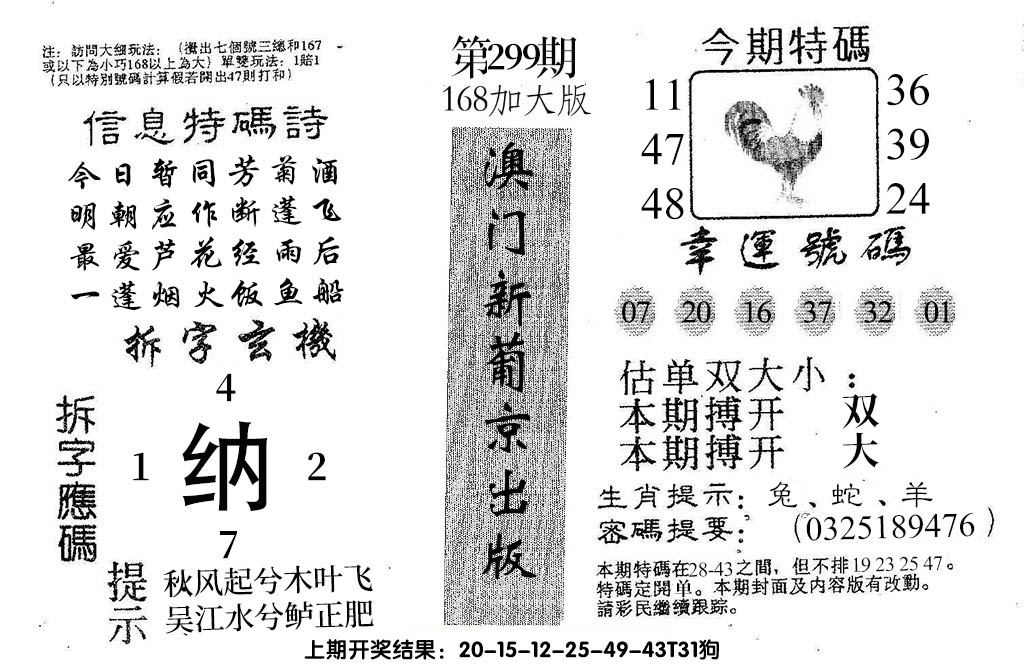 注：訪問大細玩法：（攪出七個號三總和167
或以下為小巧168以上為大）單雙玩法：1賠1
（只以特別號碼計算假若開出47則打和）
信息特碼詩
今日暂同芳菊酒
明朝应作断蓬飞
最爱芦花经雨后
一蓬烟火饭鱼船
拆字玄機
拆字應碼
4
1 纳 2
7
提示
秋风起兮木叶飞
吴江水兮鲈正肥
第299期
168加大版
澳门新葡京出版
今期特碼
11 36
47 39
48 24
幸運號碼
07 20 16 37 32 01
估单双大小：
本期搏开 双
本期搏开 大
生肖提示：兔、蛇、羊
密碼提要：（0325189476）
本期特碼在28-43之間，但不排19 23 25 47。
特碼定開单。本期封面及内容版有改動。
請彩民繼續跟踪。
上期开奖结果：20-15-12-25-49-43T31狗